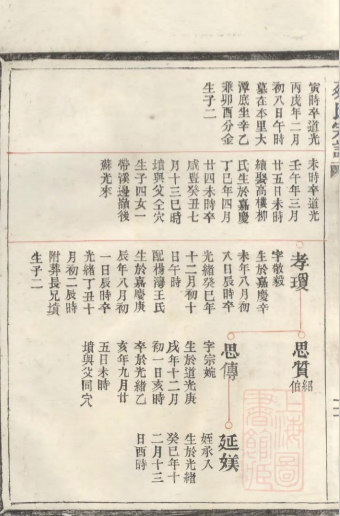 寅時卒道光
丙戌年二月
初八日午時
墓在本里大
潭底坐辛乙
兼卯酉分金
生子二
未時卒道光
壬午年三月
廿五日未時
續娶高樓柳
氏生於嘉慶
丁巳年四月
廿四未時卒
咸豐癸丑七
月十三巳時
墳與父全穴
生子四女一
帶溪邊撤後
蘇光來
孝瓊
字敬毅
生於嘉慶辛
未年八月初
八日辰時卒
光緒癸巳年
十二月初十
日午時
配楊灣王氏
生於嘉慶庚
辰年八月初
一日辰時卒
光緒丁丑十
月初二辰時
附葬長兄墳
生子二
思質
紹伯
思傳
字宗琬
生於道光庚
戌年十二月
初一日亥時
卒於光緒乙
亥年九月廿
五日未時
墳與父同穴
延媄
姪承入
生於光緒
癸巳年十
二月十三
日酉時
上海圖書館藏